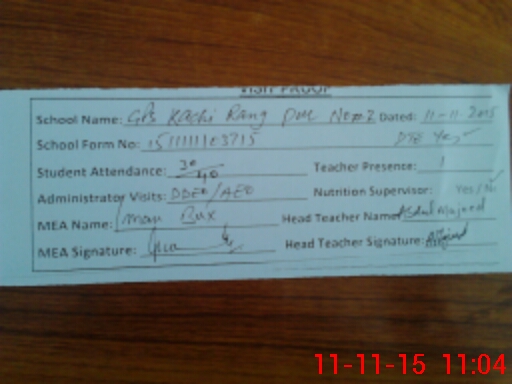 VISIT PROOF
School Name: GPS Kachi Rang Pur No=2 Dated: 11-11 2015
School Form No: 15111111103715 DTE Yes
Student Attendance: 30/40 Teacher Presence: 1
Administrator Visits: DDEO/AEO Nutrition Supervisor: Yes/No
MEA Name: Iman Bux Head Teacher Name: Abdul Majeed
MEA Signature: Head Teacher Signature: AMajeed
11-11-15 11:04